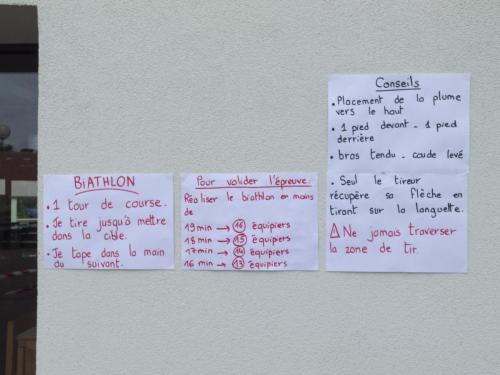 BiATHLON
• 1 tour de course.
• Je tire jusqu'à mettre
dans la cible.
• Je tape dans la main
du suivant.
Pour valider l'épreuve:
Réaliser le biathlon en moins
de
19 min → 16 équipiers
18 min → 15 équipiers
17 min → 14 équipiers
16 min → 13 équipiers
Conseils
• Placement de la plume
vers le haut
• 1 pied devant - 1 pied
derrière
• bras tendu - coude levé
• Seul le tireur
récupère sa flèche en
tirant sur la languette.
⚠ Ne jamais traverser
la zone de tir.